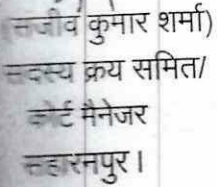 (संजीव कुमार शर्मा)
सदस्य क्रय समिति/
कोर्ट मैनेजर
सहारनपुर।